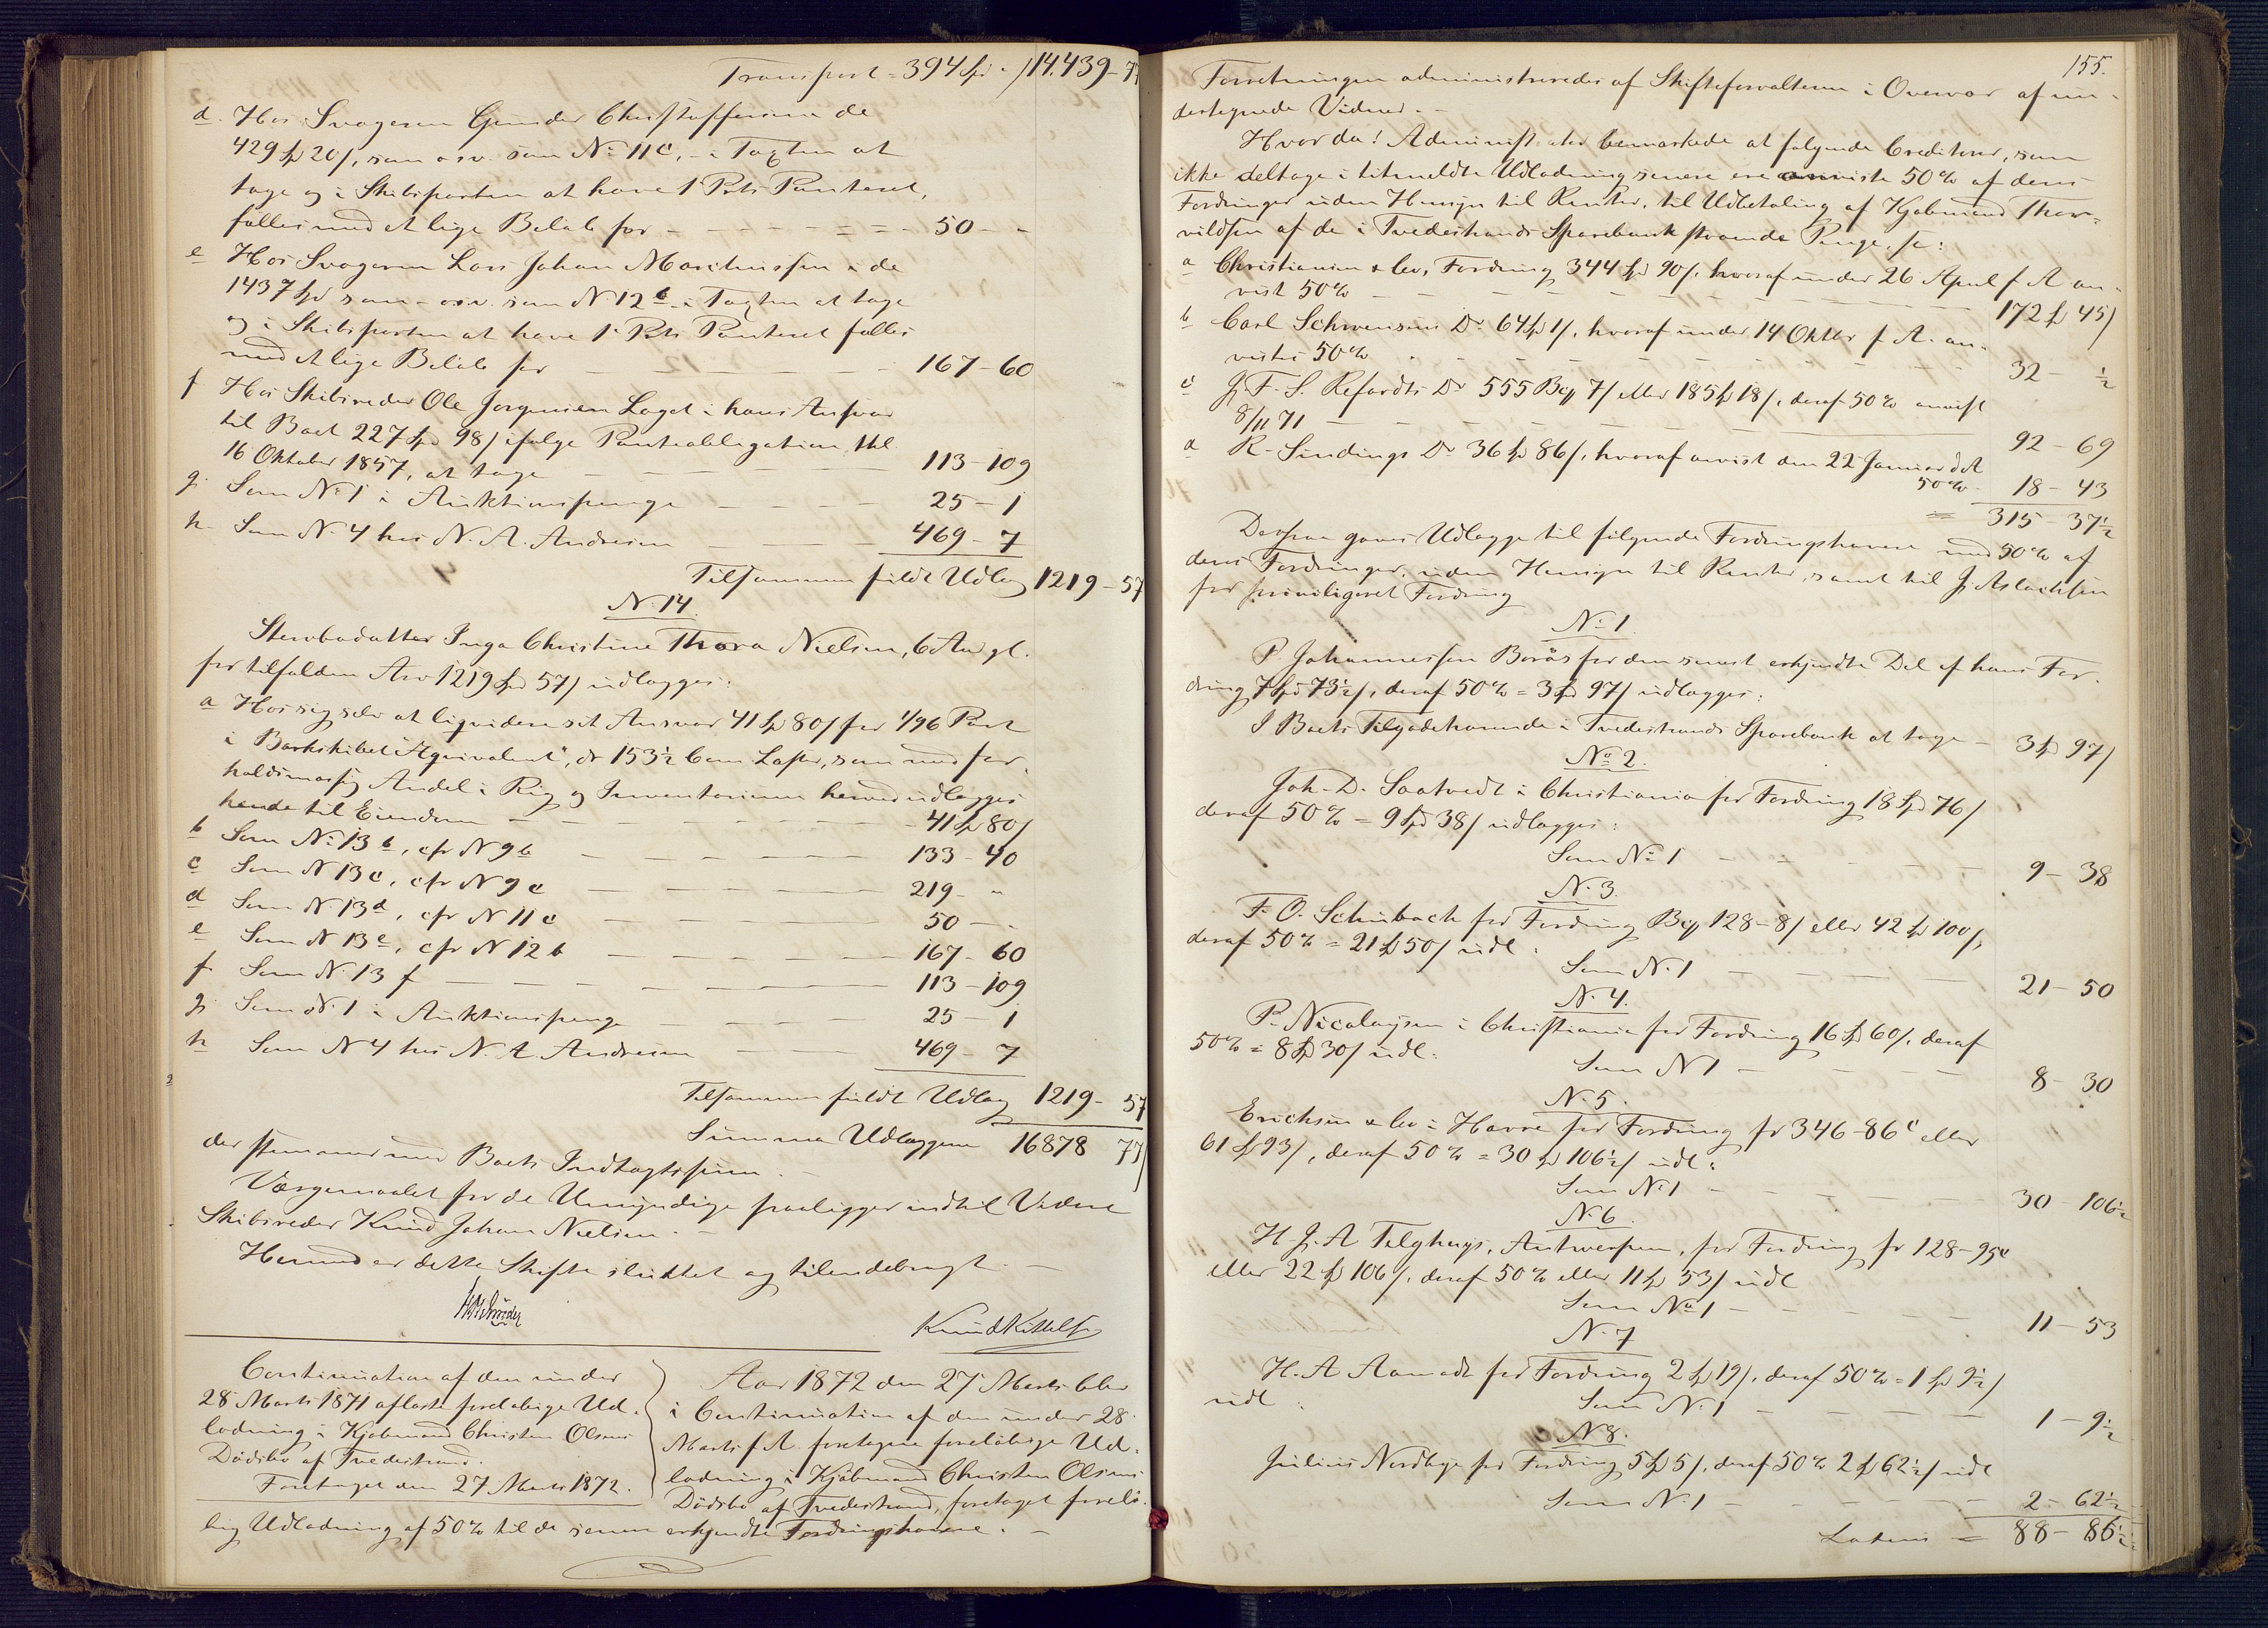 Transport = 394 Spd - / 14.439-77
d. Hos Svogeren Gunder Christoffersen de
429 Spd 20/, som osv. som No 11c, - i Tagten at
tage og i Skibsparten at have 1 Pr.ts Panteret,
fælles med et lige Beløb for - - - 50 - -
e Hos Svogeren Lars Johan Marthinssen i de
1437 Spd som - osv. som N 12 b i Tagten at tage
og i Skibsparten at have 1 Pr.ts Panteret fælles
med et lige Beløb for - - - 167-60
f Hos Skibsreder Ole Jørgensen Laget i hans Ansvar
til Boet 227 Spd 98/ ifølge Panteobligation, thl.
16 Oktober 1857, at tage - - - 113-109
g. Som No 1 i Auktionspenge - - - 25-1
h. Som N. 4 hos N. A. Andresen - - - 469-7
Tilsammen fuldt Udlæg 1219-57
N. 14.
Stervbodatter Inga Christine Thora Nielsen, 6 Aar gl.
for tilfalden Arv 1219 Spd 57/ udlægges:
a Hos sig selv at liqvidere sit Ansvar 41 Spd 80/ for 1/96 Part
i Barkskibet "Æqvivalent", dr. 153½ Com. Læster, som med for-
holdsmæssig Andel i Rig og Inventarium herved udlægges
hende til Eiendom - - - 41 Spd 80/
b Som No 13 b, cfr N 9 b - - - 133-40
c Som N 13 c, cfr N 9 c - - - 219 - "
d Som N. 13 d, cfr N 11 c - - - 50 - -
e Som N 13 e, cfr N 12 b - - - 167-60
f. Som N. 13 f - - - 113-109
g. Som N. 1 i Auktionspenge - - - 25-1
h Som N 4 hos N. A. Andresen - - - 469-7
Tilsammen fuldt Udlæg 1219-57
Summa Udlæggene 16878 77/
der stemmer med Boets Indtægtssum.
Værgemaalet for de Umyndige paaligger indtil Videre
Skibsreder Knud Johan Nielsen. -
Hermed er dette Skifte sluttet og tilendebragt. -
Knud Kittelsen
Continuation af den under
28 Marts 1871 afluste foreløbige Ud-
lodning i Kjøbmand Christen Olsens
Dødsbo af Tvedestrand.
Foretaget den 27 Marts 1872.
Aar 1872 den 27 Marts blev
i Continuation af den under 28
Marts f. A. foretagne foreløbige Ud-
lodning i Kjøbmand Christen Olsens
Dødsbo af Tvedestrand, foretaget forelø-
big Udlodning af 50% til de senere erkjendte Fordringshavere. -
155.
Forretningen administreredes af Skifteforvalteren i Overvær af un-
dertegnede Vidner. -
Hvorda! Administrator bemærkede at følgende Creditorer, som
ikke deltage i titmeldte Udlodning senere ere anviste 50% af deres
Fordringer uden Hensyn til Renter, til Udbetaling af Kjøbmand Thor-
vildsen af de i Tvedestrands Sparebank staaende Penge, sc:
a Christiansen & Co, Fordring 344 Spd 90/, hvoraf under 26 April f A an-
vist 50% - - - 172 Spd 45/
b Carl Schwensens Do 64 Spd 1/, hvoraf under 14 Oktbr f A. an-
vistes 50% - - - 32 - ½
c J. F. S. Refardts Do 555 Bco 7/ eller 185 Spd 18/, deraf 50% anvist
8/11 71 - - - 92-69
d R. Sindings Do 36 Spd 86/, hvoraf anvist den 22 Januar d A
50% - 18-43
= 315-37½
Derpaa gaves Udlægge til følgende Fordringshavere med 50% af
deres Fordringer, uden Hensyn til Renter, samt til J. Aslachsen
for priviligeret Fordring
No 1.
P. Johannessen Borøs for den senest erkjendte Del af hans For-
dring 7 Spd 73½/, deraf 50% = 3 Spd 97/ udlægges:
I Boets Tilgodehavende i Tvedestrands Sparebank at tage - 3 Spd 97/
No 2.
Joh. D. Saatvedt i Christiania for Fordring 18 Spd 76/
deraf 50% = 9 Spd 38/ udlægges:
Som No 1 - - - 9-38
N. 3.
F. O. Schubach for Fordring Bco 128-8/ eller 42 Spd 100/,
deraf 50% = 21 Spd 50/ udl:
Som N. 1 - - - 21-50
N. 4.
P. Nicolaysen i Christiania for Fordring 16 Spd 60/, deraf
50% = 8 Spd 30/ udl:
Som N 1 - - - 8-30
N. 5.
Erichsen & Co i Havre for Fordring fr 346-86 c eller
61 Spd 93/, deraf 50% = 30 Spd 106½/ udl:
Som No 1 - - - 30-106½
N. 6.
H. J. A Telghuys, Antwerpen, for Fordring fr 128-95 c
eller 22 Spd 106/, deraf 50% eller 11 Spd 53/ udl
Som No 1 - - - 11-53
N. 7
H. A Aamodt for Fordring 2 Spd 19/, deraf 50% = 1 Spd 9½/
udl:
Som N. 1 - - - 1-9½
N 8.
Julius Nordbye for Fordring 5 Spd 5/, deraf 50% 2 Spd 62½/ udl
Som N. 1 - - - 2-62½
Latus = 88-86½